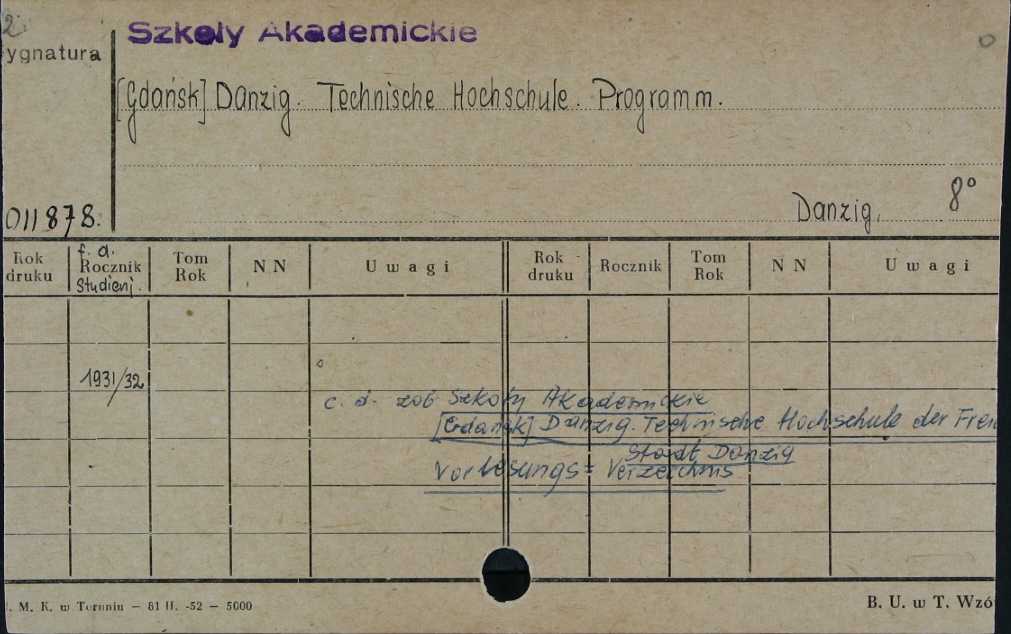 2.
Szkoły Akademickie
ygnatura
[Gdańsk] Danzig. Technische Hochschule. Programm.
Danzig, 8°
011878.
Rok druku
f. a. Rocznik Studienj.
Tom Rok
N N
Uwagi
Rok druku
Rocznik
Tom Rok
N N
Uwagi
1931/32
c. d. zob Szkoły Akademickie
[Gdańsk] Danzig. Technische Hochschule der Frei
Stadt Danzig
Vorlesungs= Verzeichnis
. M. K. w Toruniu — 81 II. -52 — 5000
B. U. w T. Wzó